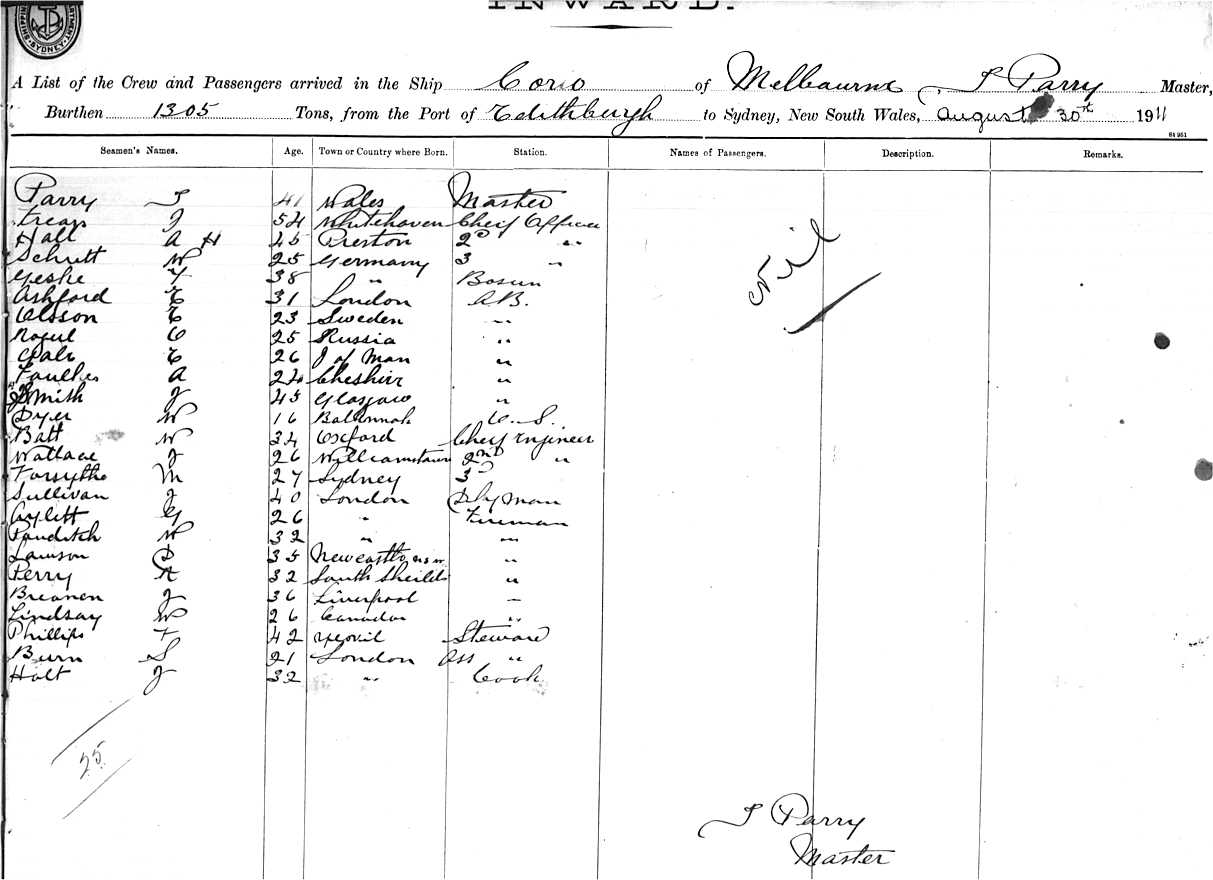 INWARD.
SYDNEY
A List of the Crew and Passengers arrived in the Ship Corio of Melbourne, J Parry Master,
Burthen 1305 Tons, from the Port of Edithburgh to Sydney, New South Wales, August 30th 1911
Seamen's Names. Age. Town or Country where Born. Station. Names of Passengers. Description. Remarks.
Parry J 41 Wales Master
J 54 Whitehaven Cheif Officer
Hall A H 45 Preston 2D "
Schutt W 25 Germany 3 "
Geske F 38 " Bosun
Ashford E 31 London A.B.
Olsson E 23 Sweden "
O 25 Russia "
E 26 I of Man "
A 24 Cheshire "
Smith J 45 Glasgow "
Dyer W 16 O.S.
Batt W 34 Oxford Cheif Engineer
Wallace J 26 Williamstown 2nd "
Forsythe M 27 Sydney 3D
Sullivan J 40 London
Aylett G 26 " Fireman
W 32 " "
Lawson D 35 Newcastle NSW "
Perry A 32 South Sheilds "
J 36 Liverpool "
Lindsay W 26 Canada "
Phillips F 42 Yeovil Steward
Burn S 21 London Ass "
Holt J 32 " Cook
Nil
25
J Parry
Master